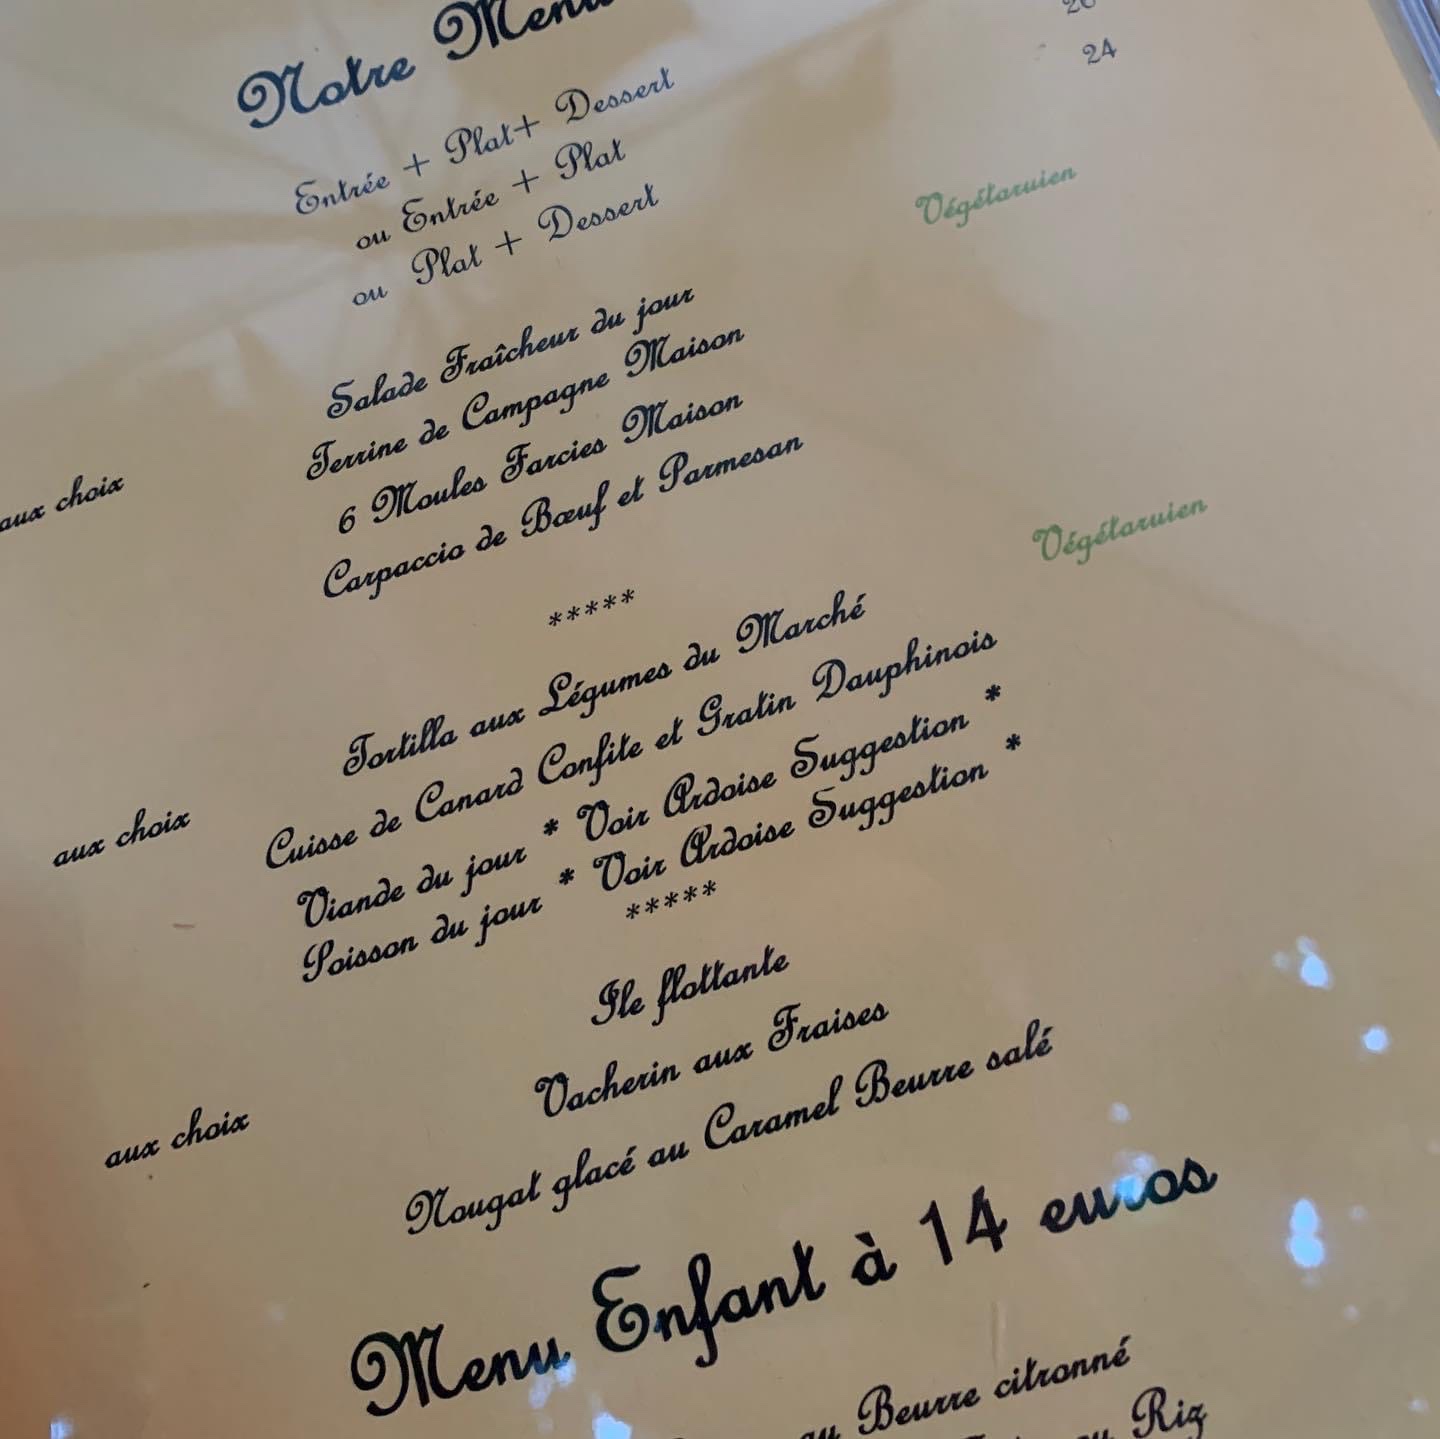 Notre Menu
Entrée + Plat+ Dessert
ou Entrée + Plat 24
ou Plat + Dessert
Salade Fraîcheur du jour Végétaruien
Terrine de Campagne Maison
aux choix 6 Moules Farcies Maison
Carpaccio de Bœuf et Parmesan
*****
Tortilla aux Légumes du Marché Végétaruien
Cuisse de Canard Confite et Gratin Dauphinois
aux choix Viande du jour * Voir Ardoise Suggestion *
Poisson du jour * Voir Ardoise Suggestion *
*****
Ile flottante
Vacherin aux Fraises
aux choix Nougat glacé au Caramel Beurre salé
Menu Enfant à 14 euros
au Beurre citronné
Riz